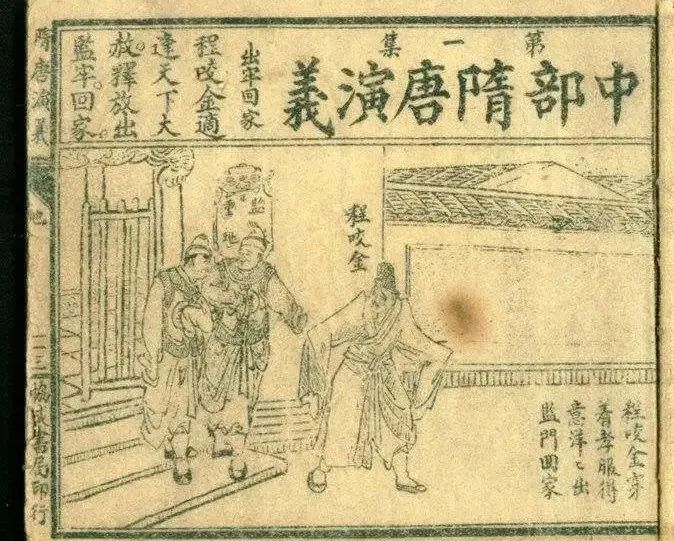 第一集
中部隋唐演義
出牢回家
程咬金適
達天下大
赦釋放出
監牢回家
監
重地
程咬金
程咬金穿
着孝服得
意洋洋出
監門回家
隋唐演義
書局印行